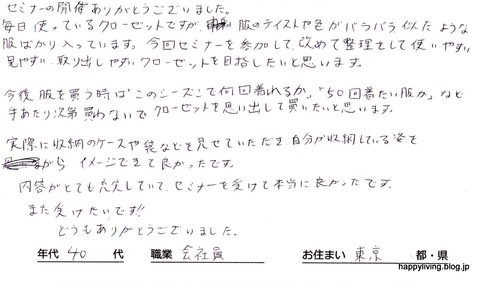 セミナーの開催ありがとうございました。
毎日使っているクローゼットですが、服のテイストや色がバラバラ似たような
服ばかり入っています。今回セミナーを参加して、改めて整理をして使いやすい
見やすい、取り出しやすいクローゼットを目指したいと思います。
今後服を買う時は"このシーズンで何回着れるか"、"50回着たい服か"など
手あたり次第買わないでクローゼットを思い出して買いたいと思います。
実際に収納のケースや袋などを見せていただき、自分が収納している姿を
イメージできて良かったです。
内容がとても充実していて、セミナーを受けて本当に良かったです。
また受けたいです!!
どうもありがとうございました。
年代 40 代 職業 会社員 お住まい 東京 都・県
happyliving.blog.jp